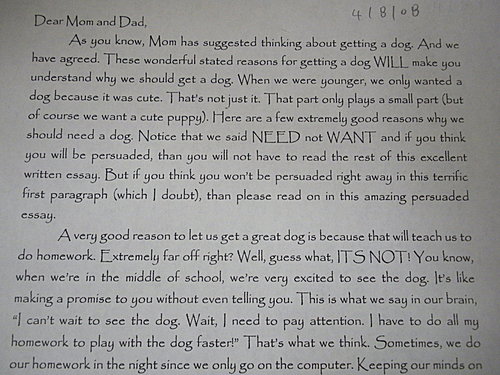 4/8/08
Dear Mom and Dad,
As you know, Mom has suggested thinking about getting a dog. And we
have agreed. These wonderful stated reasons for getting a dog WILL make you
understand why we should get a dog. When we were younger, we only wanted a
dog because it was cute. That's not just it. That part only plays a small part (but
of course we want a cute puppy). Here are a few extremely good reasons why we
should need a dog. Notice that we said NEED not WANT and if you think
you will be persuaded, than you will not have to read the rest of this excellent
written essay. But if you think you won't be persuaded right away in this terrific
first paragraph (which I doubt), than please read on in this amazing persuaded
essay.
A very good reason to let us get a great dog is because that will teach us to
do homework. Extremely far off right? Well, guess what, ITS NOT! You know,
when we're in the middle of school, we're very excited to see the dog. It's like
making a promise to you without even telling you. This is what we say in our brain,
"I can't wait to see the dog. Wait, I need to pay attention. I have to do all my
homework to play with the dog faster!" That's what we think. Sometimes, we do
our homework in the night since we only go on the computer. Keeping our minds on